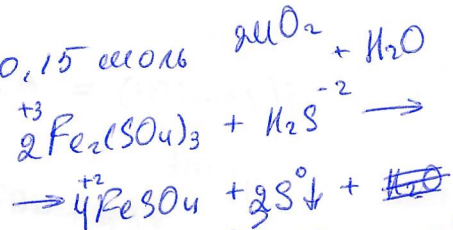 0,15 моль MnO₂ + H₂O
2Fe₂⁺³(SO₄)₃ + H₂S⁻² ⟶
⟶ 4Fe⁺²SO₄ + 2S⁰↓ + H₂O